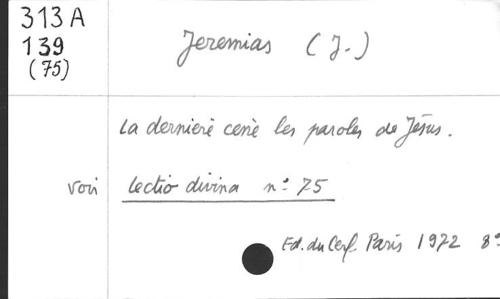 313 A
139
(75)
Jeremias (J.)
La dernière cène les paroles de Jésus.
voir lectio divina n° 75
Ed. du Cerf. Paris 1972 8°